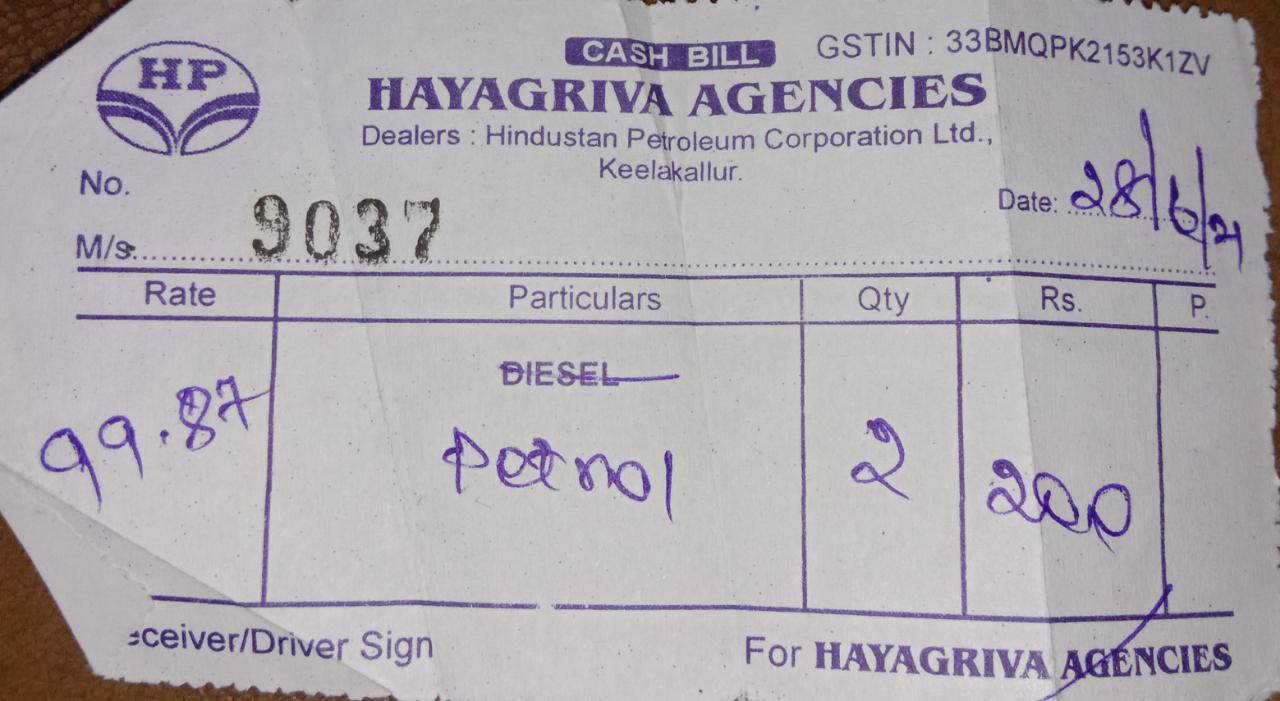 HP
CASH BILL GSTIN : 33BMQPK2153K1ZV
HAYAGRIVA AGENCIES
Dealers : Hindustan Petroleum Corporation Ltd.,
Keelakallur.
No. 9037
Date: 28/6/21
M/s.
Rate Particulars Qty Rs. P.
DIESEL
99.87 Petrol 2 200
ceiver/Driver Sign For HAYAGRIVA AGENCIES